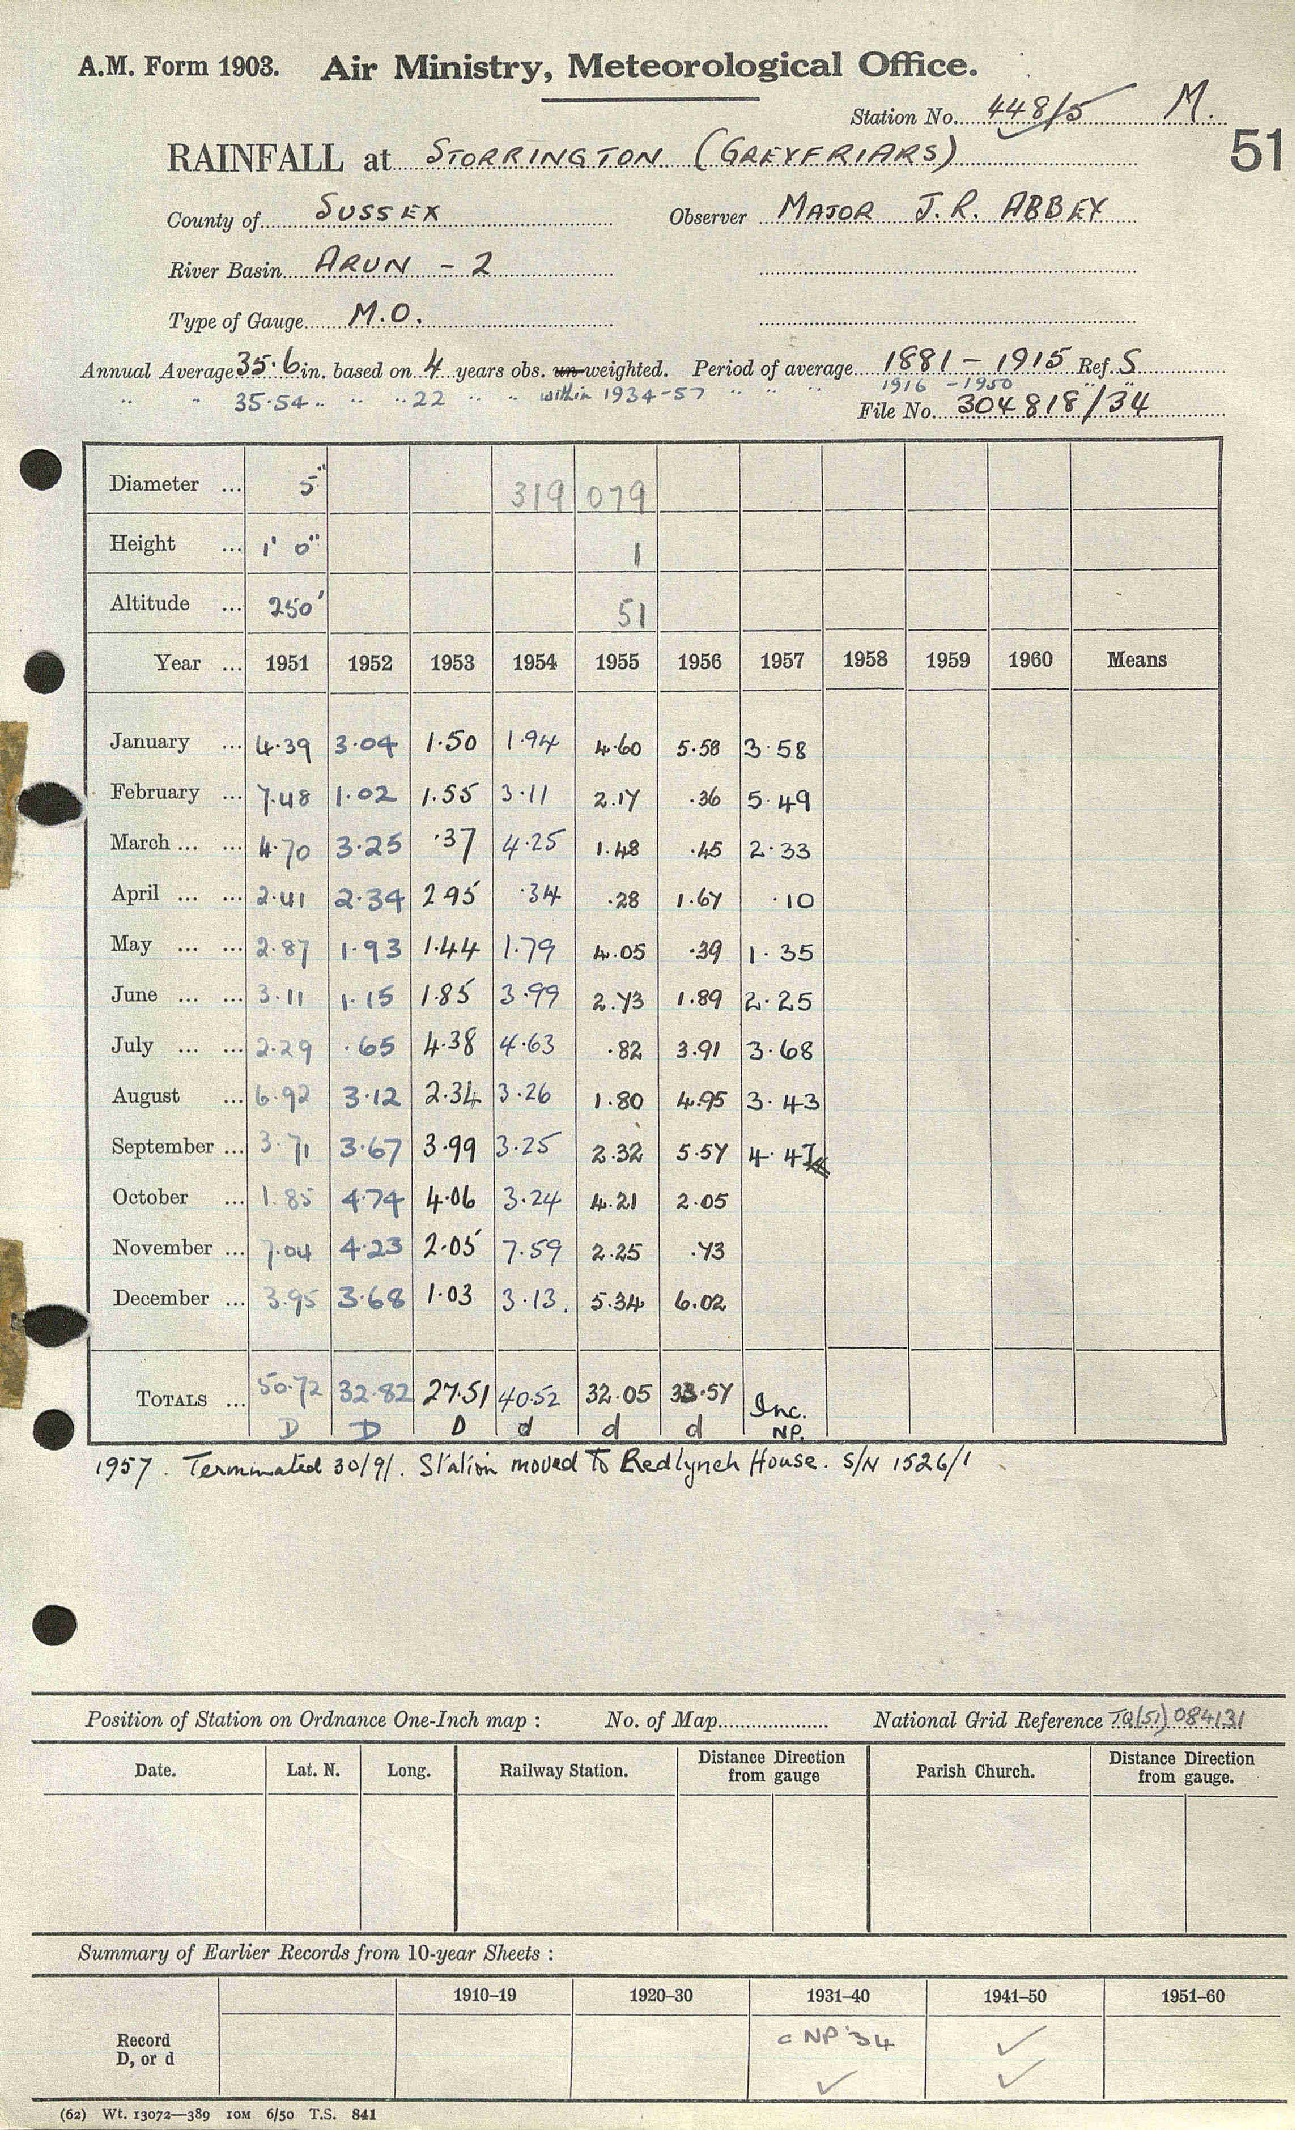 A.M. Form 1903. Air Ministry, Meteorological Office.
Station No. 448/5 M.
51
RAINFALL at STORRINGTON (GREYFRIARS)
County of SUSSEX Observer MAJOR J.R. ABBEY
River Basin ARUN - 2
Type of Gauge M.O.
Annual Average 35.6 in. based on 4 years obs. un-weighted. Period of average 1881 - 1915 Ref. S
" " 35.54 " " " 22 " " within 1934-57 " " " 1916 - 1950 " "
File No. 304818/34
Diameter ... 5" 319 079
Height ... 1' 0" 1
Altitude ... 250' 51
Year ... 1951 1952 1953 1954 1955 1956 1957 1958 1959 1960 Means
January ... 4.39 3.04 1.50 1.94 4.60 5.58 3.58
February ... 7.48 1.02 1.55 3.11 2.17 .36 5.49
March ... ... 4.70 3.25 .37 4.25 1.48 .45 2.33
April ... ... 2.41 2.34 2.95 .34 .28 1.67 .10
May ... ... 2.87 1.93 1.44 1.79 4.05 .39 1.35
June ... ... 3.11 1.15 1.85 3.99 2.73 1.89 2.25
July ... ... 2.29 .65 4.38 4.63 .82 3.91 3.68
August ... 6.92 3.12 2.34 3.26 1.80 4.95 3.43
September ... 3.71 3.67 3.99 3.25 2.32 5.57 4.47
October ... 1.85 4.74 4.06 3.24 4.21 2.05
November ... 7.04 4.23 2.05 7.59 2.25 .73
December ... 3.95 3.68 1.03 3.13. 5.34 6.02
TOTALS ... 50.72 32.82 27.51 40.52 32.05 33.57 Inc.
D D D d d d NP.
1957. Terminated 30/9/. Station moved to Redlynch House. S/N 1526/1
Position of Station on Ordnance One-Inch map : No. of Map National Grid Reference TQ(51) 084131
Date. Lat. N. Long. Railway Station. Distance from gauge Direction Parish Church. Distance from gauge. Direction
Summary of Earlier Records from 10-year Sheets :
1910–19 1920–30 1931–40 1941–50 1951–60
Record D, or d c NP '34 ✓
✓ ✓
(62) Wt. 13072—389 10M 6/50 T.S. 841